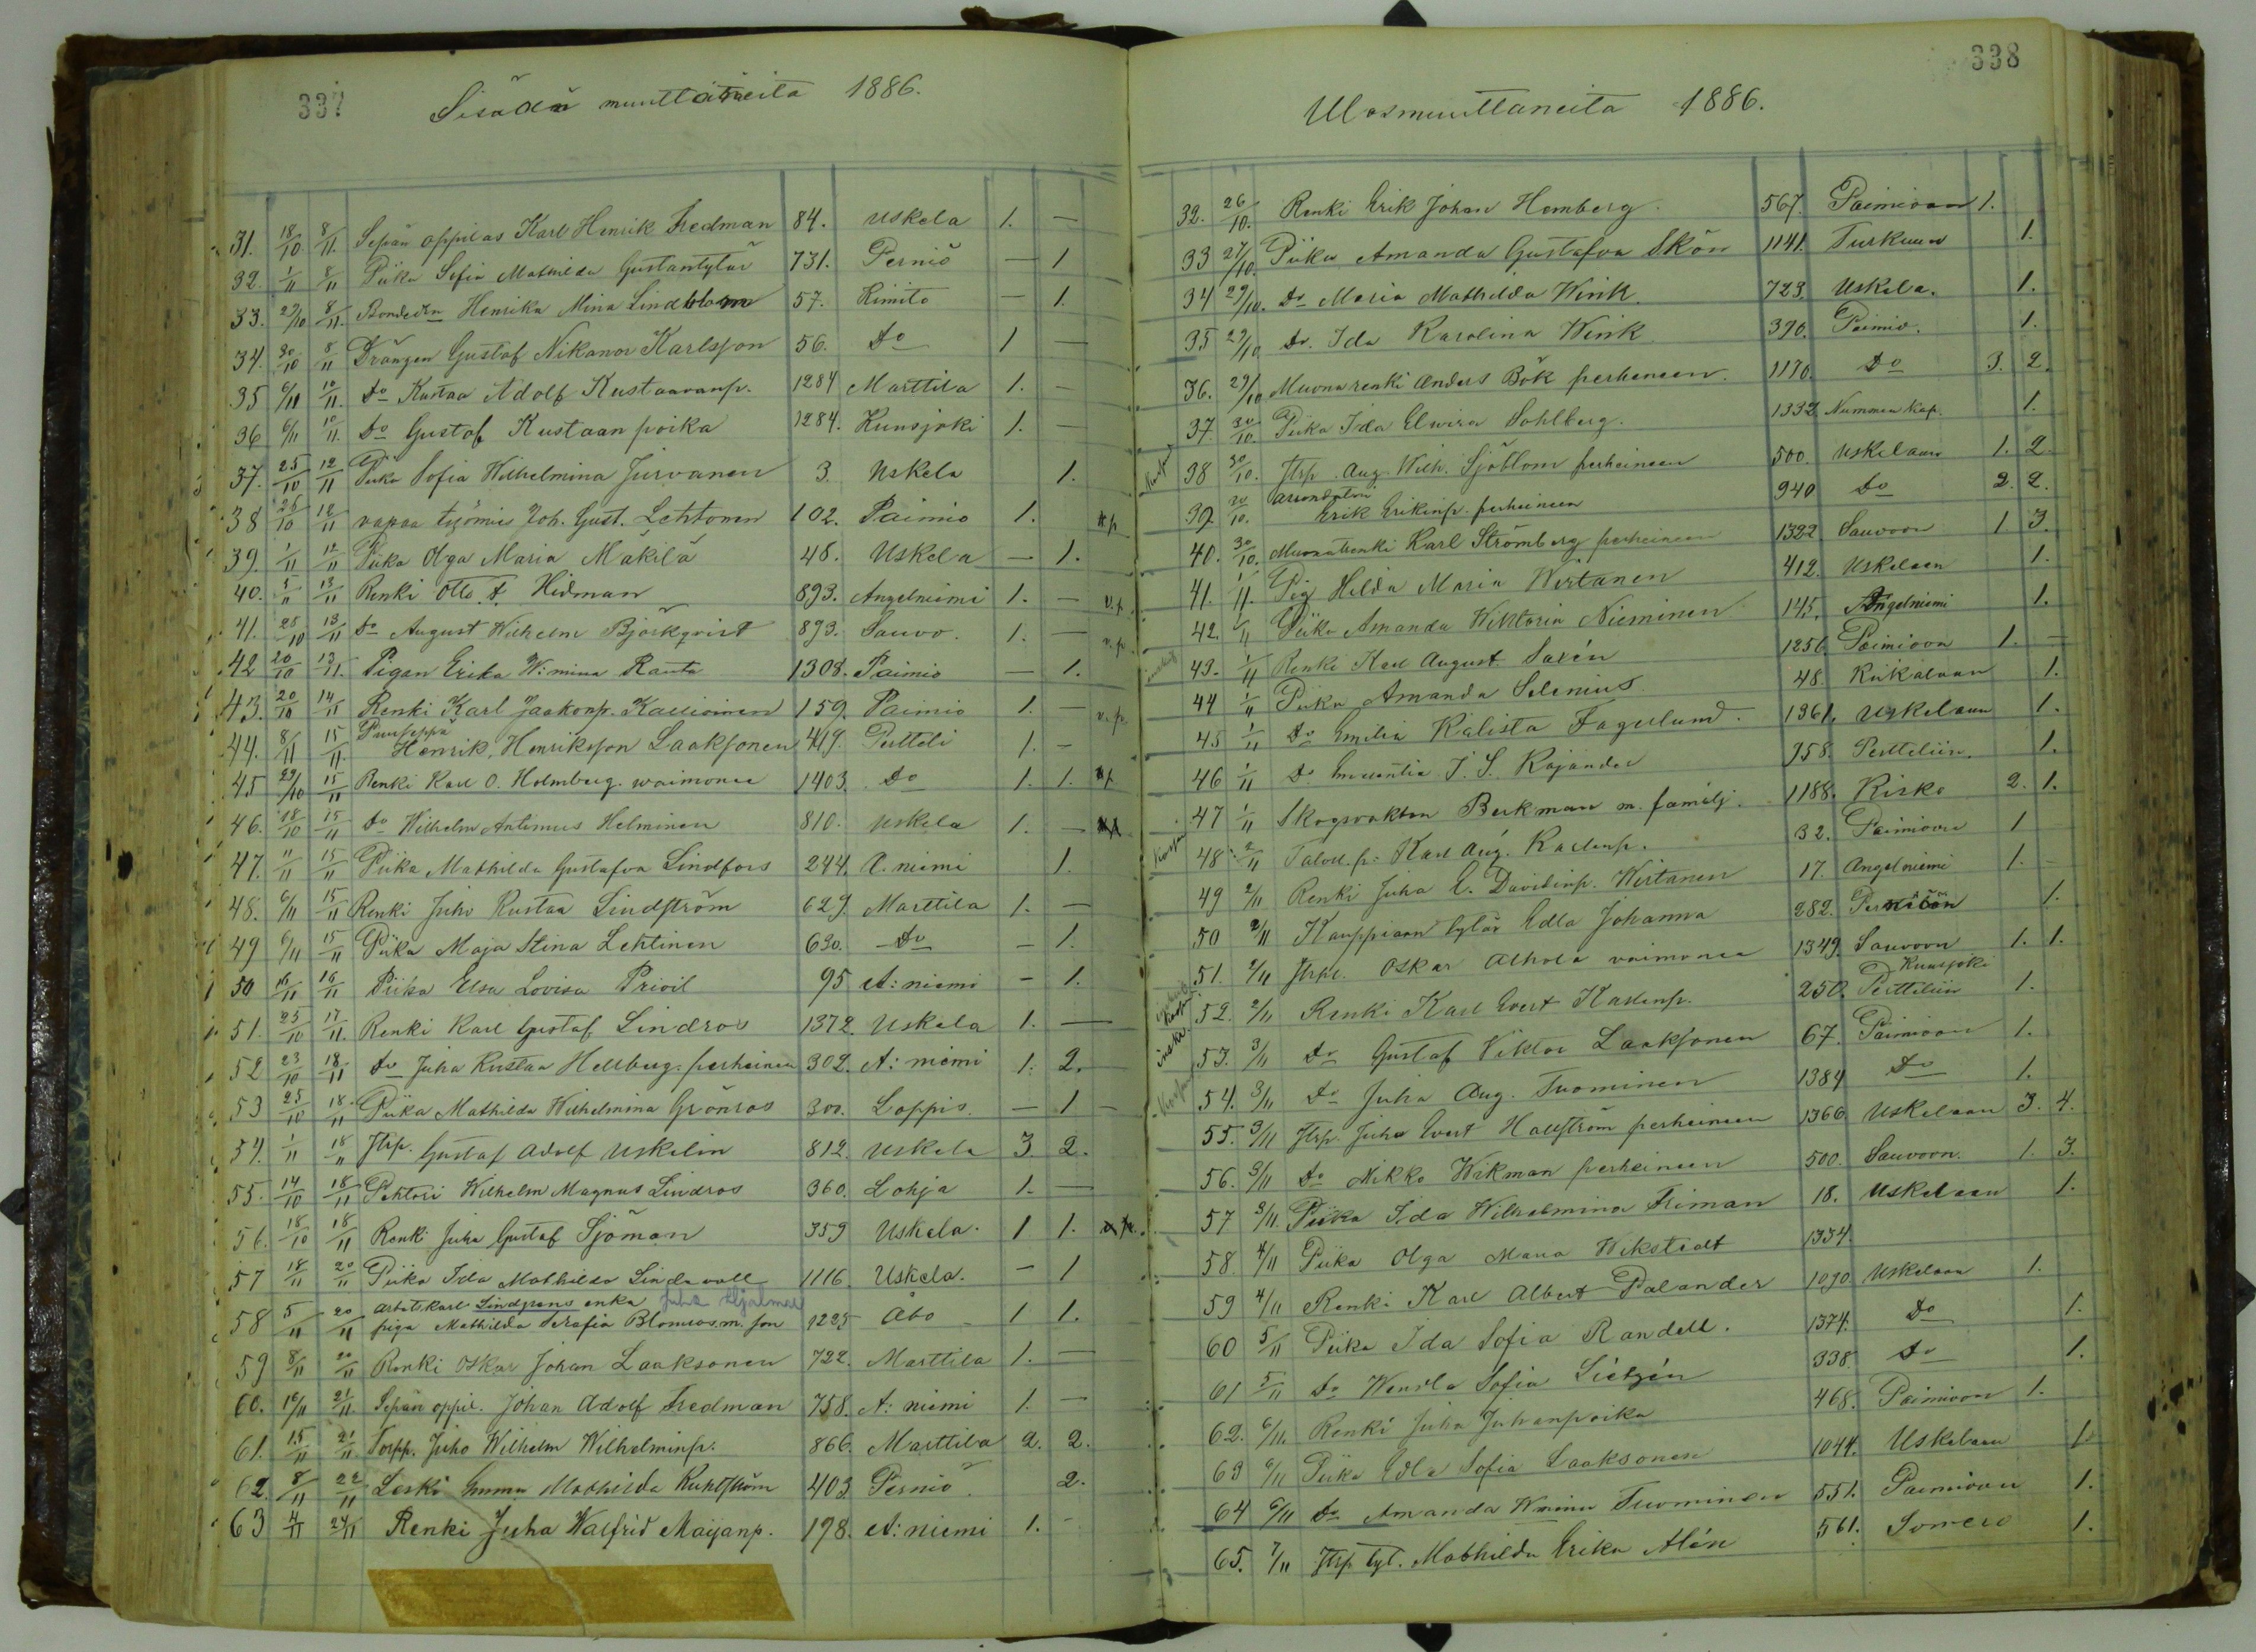 337
Sisään muuttaneita 1886.
31. 18/10 8/11. Sepän oppilas Karl Henrik Fredman 84. Uskela 1. —
32. 1/11 8/11 Piika Sofia Mathilda Gustantytär 731. Perniö — 1
33. 29/10 8/11. Henrika Mina Lindblom 57. Kimito — 1.
34. 30/10 8/11 Drängen Gustaf Nikanor Karlsson 56. Do 1 —
35 6/11 10/11. Do Kustaa Adolf Kustaavanp. 1284 Marttila 1. —
36 6/11 10/11. Do Gustaf Kustaan poika 1284. Kuusjoki 1. —
37. 25/10 12/11 Piika Sofia Wilhelmina Jurvanen 3. Uskela 1.
38 25/10 12/11 vapaa työmies Joh. Gust. Lehtonen 102. Paimio 1.
39. 1/11 12/11 Piika Olga Maria Mäkilä 48. Uskela — 1.
40. 5/11 13/11 Renki Otto A. Hidman 893. Angelniemi 1. —
41. 25/10 13/11 Do August Wilhelm Björkqvist 893. Sauvo. 1. —
42 20/10 13/11. Pigan Erika W:mina Ranta 1308. Paimio — 1.
43. 20/10 14/11 Renki Karl Jaakonp. Kallioinen 159. Paimio 1. —
44. 8/11 15/11. Puuseppä Henrik Henriksson Laaksonen 419. Pertteli 1. —
45 29/10 15/11 Renki Karl O. Holmberg. waimonsa 1403. Do 1. 1.
46. 18/10 15/11 Do Wilhelm Antonius Helminen 810. Uskela 1. —
47. 11/11 15/11 Piika Mathilda Gustafva Lindfors 244. A. niemi 1.
48. 6/11 15/11 Renki Juho Kustaa Lindström 629. Marttila 1. —
49 6/11 15/11 Piika Maja Stina Lehtinen 630. Do — 1.
50 16/11 16/11 Piika Elsa Lovisa Prioil 95 A: niemi — 1.
51. 25/10 17/11. Renki Karl Gustaf Lindros 1372. Uskela 1. —
52 23/10 18/11 Do Juha Kustaa Hellberg. perheinen 302. A: niemi 1. 2.
53 25/10 18/11 Piika Mathilda Wilhelmina Grönros 300. Loppis. — 1 —
54. 1/11 18/11 Gustaf Adolf Uskelin 812. Uskela 3 2.
55. 14/10 18/11 Wilhelm Magnus Lindros 360. Lohja 1. —
56. 18/10 18/11 Renki Juha Gustaf Sjöman 359 Uskela. 1 1.
57 18/11 20/11 Piika Ida Mathilda Lindvall 1116. Uskela. — 1
58 5/11 20/11 arbetskarl enka Juha Hjalmar
piga Mathilda Serafia Blomros m. son 1225 Åbo 1 1.
59 8/11 20/11 Renki Oskar Johan Laaksonen 722. Marttila 1. —
60. 16/11 21/11. Sepän oppil. Johan Adolf Fredman 758. A: niemi 1. —
61. 15/11 21/11. Torpp. Juho Wilhelm Wilhelminp. 866. Marttila 2. 2.
62. 8/11 22/11 Leski Emma Mathilda 403 Perniö. 2.
63 4/11 24/11 Renki Juha Walfrid Maijanp. 198. A: niemi 1. —
338
Ulosmuuttaneita 1886.
32. 26/10. Renki Erik Johan Homberg. 567. Paimioon 1.
33 27/10. Piika Amanda Gustafva Skön 1141. Turkuun 1.
34 29/10. Do Maria Mathilda Wink. 723. Uskela. 1.
35 29/10 Do. Ida Karolina Wink 390. Paimio. 1.
36. 29/10 Muonarenki Anders Bök perheneen. 1170. Do 3. 2.
37. 30/10. Piika Ida Elwira Sohlberg. 1332. Nummen kap. 1.
38 30/10. Aug. Wilh. Sjöblom perheineen 500. Uskelaan 1. 2.
39. 30/10. Erik Erikinp. perheineen 940 Do 2. 2.
40. 30/10. Muonarenki Karl Strömberg perheineen 1322 Sauvoon 1 3.
41. 1/11. Pig Hilda Maria Wirtanen 412. Uskelaan 1.
42. 1/11 Piika Amanda Wiktoria Nieminen 145. Angelniemi 1.
43. 1/11 Renki Karl August Saxén 1256. Paimioon 1. —
44 1/11 Piika Amanda Selenius. 48. Kiikalaan 1.
45 1/11 Do Emilia Kalista Fagerlund. 1361. Uskelaan 1.
46 1/11 Do J. S. Rajander 958. Perttelin. 1.
47 1/11 Skogsvakten Berkman m. familj. 1188. Kisko 2. 1.
48. 2/11 Karl Aug. Karlinp. 32. Paimioon 1
49 2/11 Renki Juha E. Davidinp. Wirtanen 17. Angelniemi 1. —
50 2/11 Kauppiaan tytär Edla Johanna 282. Perniöön 1.
51. 2/11 Oskar Alhola vaimonsa 1349. Sauvoon 1. 1.
52. 2/11 Renki Karl Evert Karlinp. 250. Perttelin Kuusjoki 1.
53. 3/11 Do Gustaf Viktor Laaksonen 67. Paimioon 1.
54. 3/11 Do Juha Aug. Tuominen 1384 Do 1.
55. 3/11 Juho Evert Hallström perheineen 1366 Uskelaan 3. 4.
56. 3/11 Do Nikko Wikman perheineen 500. Sauvoon. 1. 3.
57 3/11. Piika Ida Wilhelmina Friman 18. Uskelaan 1.
58. 4/11 Piika Olga Maria Wikstedt 1334.
59 4/11 Renki Karl Albert Palander 1090 Uskelaan 1.
60 5/11 Piika Ida Sofia Randell. 1374. Do 1.
61 5/11 Do Wendla Sofia Lietzén 338. Do 1.
62. 6/11. Renki Juha Juhanpoika 468. Paimioon 1.
63 6/11 Piika Edla Sofia Laaksonen 1044. Uskelaan 1.
64 6/11 Do Amanda Wmina Tuominen 551. Paimioon 1.
65. 7/11 tyt. Mathilda Erika Alén 561. Somero 1.